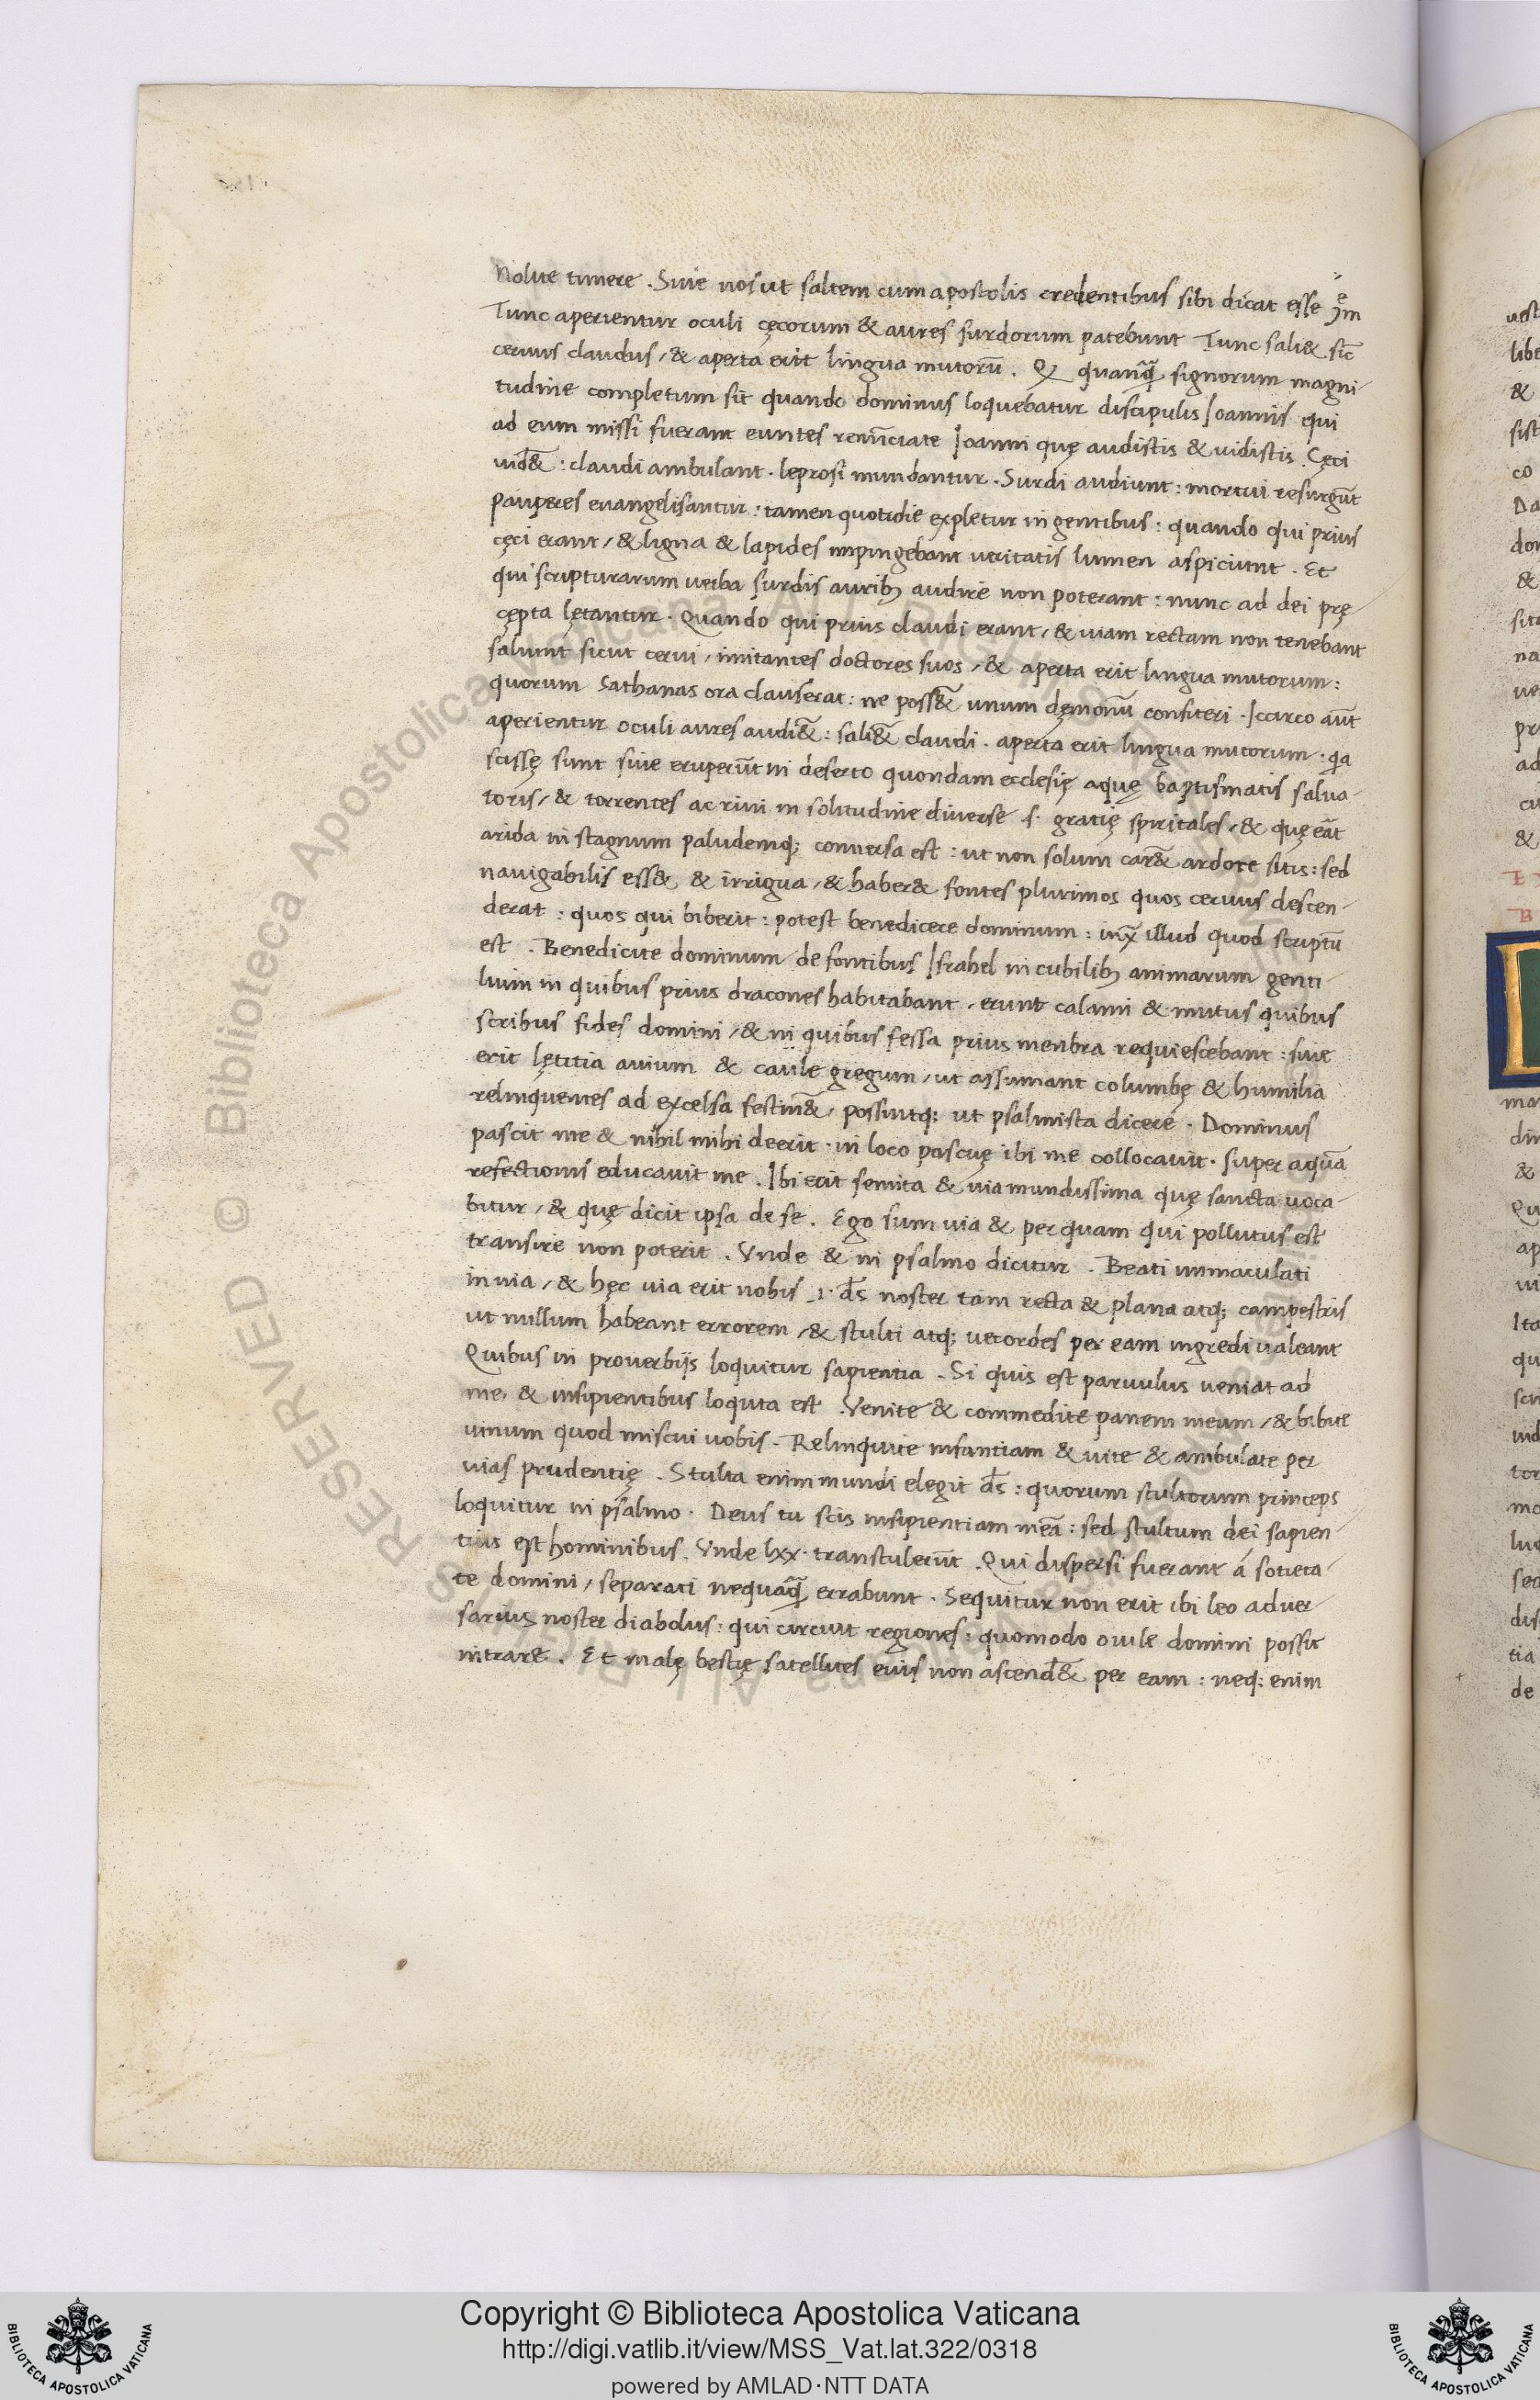 Nolite timere . Siue nos ut saltem cum apostolis credentibus sibi dicat esse
Tunc aperientur oculi cęcorum & aures surdorum patebunt Tunc sali& sic̄
ceruus claudus, & aperta erit lingua mutorū . Q quanq̄ signorum magni-
tudine completum sit quando dominus loquebatur discipulis Ioannis qui
ad eum missi fuerant euntes renūciate Ioanni quę audistis & uidistis . Cęci
uid&̄ : claudi ambulant . leprosi mundantur . Surdi audiunt : mortui resurgūt
pauperes euangelisantur : tamen quotidie expletur in gentibus : quando qui prius
cęci erant, & ligna & lapides impingebant ueritatis lumen aspiciunt . Et
qui scripturarum uerba surdis aurib; audire non poterant : nunc ad dei prę-
cępta lętantur . Quando qui prius claudi erant, & uiam rectam non tenebant
saliunt sicut cerui, imitantes doctores suos, & aperta erit lingua mutorum :
quorum Sathanas ora clauserat : ne poss&̄ unum dęmonū confiteri . Iccirco aūt
aperientur oculi aures audi&̄ : sali&̄ claudi . aperta erit lingua mutorum . q̄a
scissę sunt siue eruperūt in deserto quondam ecclesię aquę baptismatis salua-
toris, & torrentes ac riui in solitudine diuerse .s. gratię spiritales, & quę eāt
arida in stagnum paludemq; conuersa est : ut non solum car&̄ ardore sitis : sed
nauigabilis ess& & irrigua, & haber& fontes plurimos quos ceruus descen-
derat : quos qui biberit : potest benedicere dominum : illud quod scriptū
est . Benedicite dominum de fontibus Israhel in cubilib; animarum genti
lium in quibus prius dracones habitabant, erunt calami & mutus quibus
scribus fides domini, & in quibus fessa prius menbra requiescebant : siue
erit lętitia auium & caule gregum, ut assumant columbę & humilia
relinquentes ad excelsa festin&̄, possintq; ut psalmista dicere . Dominus
pascit me & nihil mihi deerit . in loco pascuę ibi me collocauit . super aquā
refectionis educauit me . Ibi erit semita & uia mundissima quę sancta uoca-
bitur, & quę dicit ipsa de se . Ego sum uia & per quam qui pollutus est
transire non poterit . Vnde & in psalmo dicitur . Beati immaculati
in uia, & hęc uia erit nobis .i. d̄s noster tam recta & plana atq; campestris
ut nullum habeant errorem, & stulti atq; uecordes per eam ingredi ualeant
Quibus in prouerbijs loquitur sapientia . Si quis est paruulus ueniat ad
me, & insipientibus loquta est . Venite & commedite panem meum, & bibite
uinum quod miscui uobis . Relinquite infantiam & uite & ambulate per
uias prudentię . Stulta enim mundi elegit d̄s : quorum stultorum princeps
loquitur in psalmo . Deus tu scis insipientiam meā : sed stultum dei sapien-
tius est hominibus . Vnde lxx . transtulerūt . Qui dispersi fuerant á societa-
te domini, separati nequaq̄ errabunt . Sequitur non erit ibi leo aduer-
sarius noster diabolus : qui circuit regiones : quomodo ouile domini possit
intrare . Et malę bestię satellites eius non ascend&̄ per eam : neq; enim
Copyright © Biblioteca Apostolica Vaticana
http://digi.vatlib.it/view/MSS_Vat.lat.322/0318
powered by AMLAD·NTT DATA
BIBLIOTECA APOSTOLICA VATICANA
BIBLIOTECA APOSTOLICA VATICANA